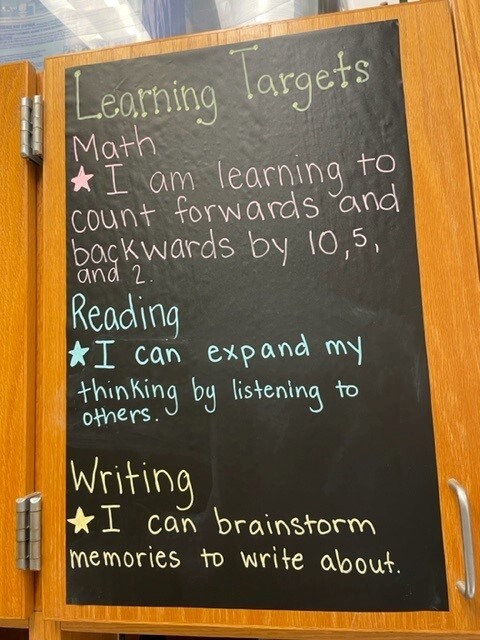 Learning Targets
Math
I am learning to
count forwards and
backwards by 10, 5,
and 2.
Reading
I can expand my
thinking by listening to
others.
Writing
I can brainstorm
memories to write about.